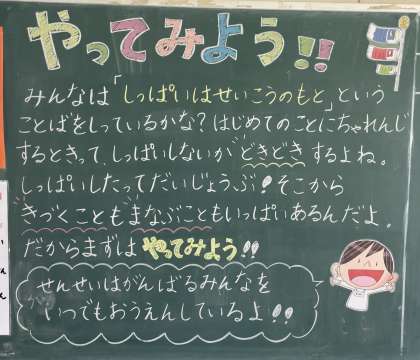 やってみよう!!
みんなは「しっぱいはせいこうのもと」という
ことばをしっているかな?はじめてのことにちゃれんじ
するときって、しっぱいしないかどきどきするよね。
しっぱいしたってだいじょうぶ!そこから
きづくこともまなぶこともいっぱいあるんだよ。
だからまずはやってみよう!!
せんせいはがんばるみんなを
いつでもおうえんしているよ!!